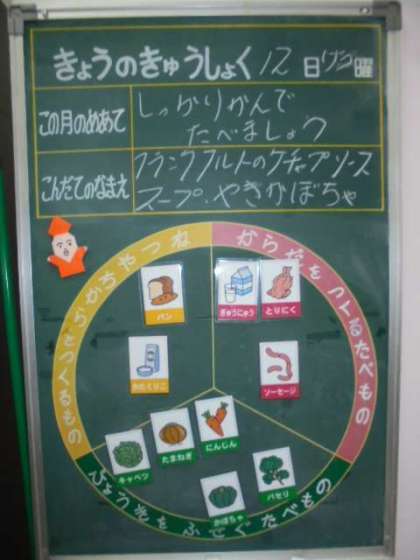 きょうのきゅうしょく 12日 げつ曜
この月のめあて
しっかりかんで
たべましょう
こんだてのなまえ
フランクフルトのケチャップソース
スープ・やきかぼちゃ
ねつやちからをつくるもの
からだをつくるたべもの
びょう気をふせぐたべもの
パン
ぎゅうにゅう
とりにく
かたくりこ
ソーセージ
キャベツ
たまねぎ
にんじん
かぼちゃ
パセリ